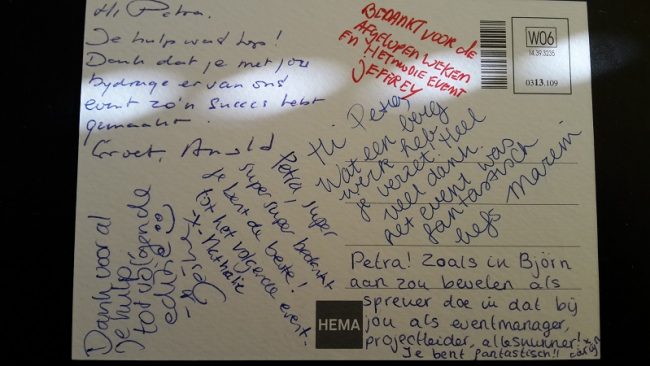 Hi Petra.
Je hulp was top!
Dank dat je met jou
bydrage er van ons
event zo'n succes hebt
gemaakt.
Groet, Arnold
BEDANKT VOOR DE
AFGELOPEN WEKEN
EN HET MOOIE EVENT
JEFFREY
W06
14.39.5235
0313.109
Hi Petra
Wat een berg
werk heb
je verzet! Heel
veel dank.
het event was
fantastisch
liefs Marein
Petra, super
supersuper bedankt
je bent de beste!
tot het volgende event.
- Nathalie
Dank voor al
je hulp
tot volgende
editie
Petra! Zoals ik Björn
aan zou bevelen als
spreker doe ik dat bij
jou als eventmanager,
projectleider, alleskunner!
Je bent fantastisch!!
HEMA